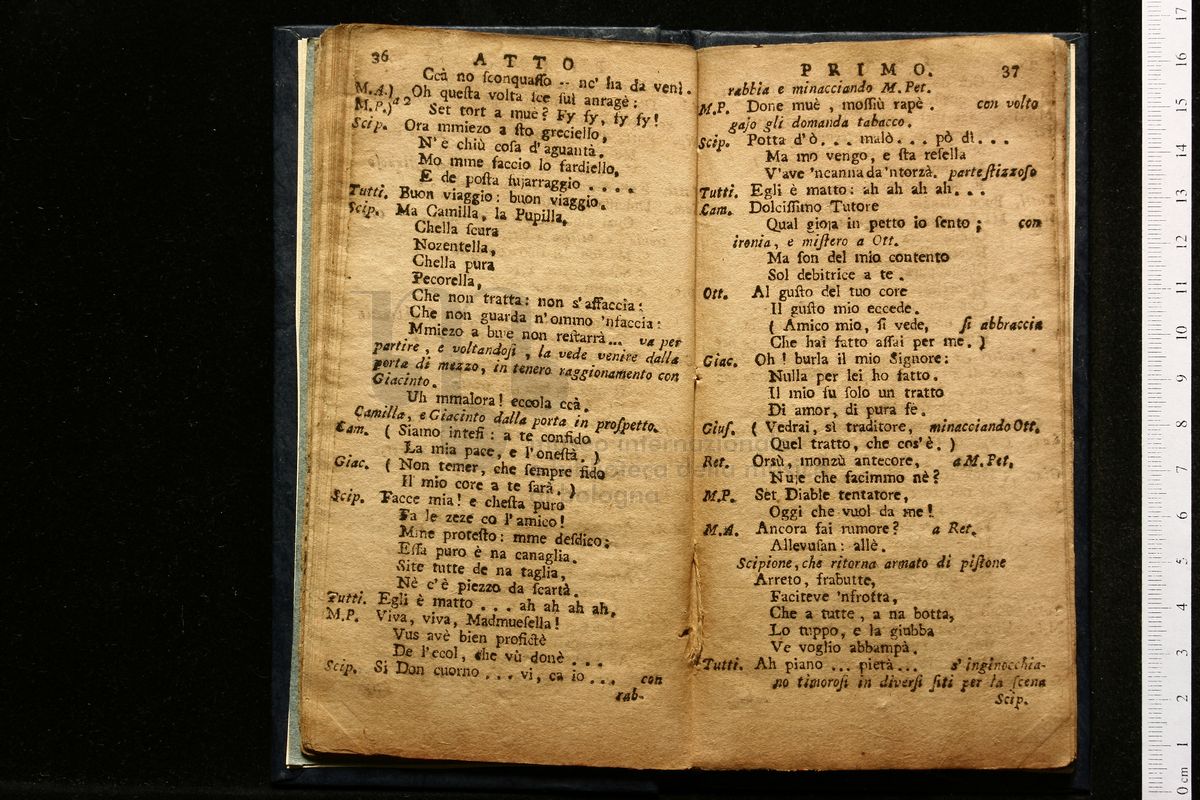 36 ATTO
Ccà no ſconquaſſo -- nc' ha da venì.
M.A.) Oh queſta volta ſce ſul anragè:
M.P.) a 2 Set tort a mue? Fy fy, fy fy!
Scip. Ora mmiezo a ſto greciello,
N'è chiù coſa d'aguantà.
Mo mme faccio lo fardiello,
E de poſta ſujarraggio ....
Tutti. Buon viaggio: buon viaggio.
Scip. Ma Camilla, la Pupilla,
Chella ſcura
Nozentella,
Chella pura
Pecorella,
Che non tratta: non s'affaccia:
Che non guarda n'ommo 'nfaccia:
Mmiezo a buje non reſtarrà... va per
partire, e voltandoſi, la vede venire dalla
porta di mezzo, in tenero raggionamento con
Giacinto.
Uh mmalora! eccola ccà.
Camilla, e Giacinto dalla porta in proſpetto.
Cam. ( Siamo inteſi: a te confido
La mia pace, e l'oneſtà. )
Giac. ( Non temer, che ſempre fido
Il mio core a te ſarà. )
Scip. Facce mia! e cheſta puro
Fa le zeze co l'amico!
Mme proteſto: mme deſdico:
Eſſa puro è na canaglia.
Site tutte de na taglia,
Nè c'è piezzo da ſcartà.
Tutti. Egli è matto ... ah ah ah ah.
M.P. Viva, viva, Madmueſella!
Vus avè bien profictè
De l'ecol, che vù donè ...
Scip. Si Don cuorno ... vi, ca io ... con
rab-
PRIMO. 37
rabbia e minacciando M. Pet.
M.P. Done muè, moſſiù rapè. con volto
gajo gli domanda tabacco.
Scip. Potta d'ò... malò... pò dì...
Ma mo vengo, e ſta reſella
V'ave 'ncanna da 'ntorzà. parte ſtizzoſo
Tutti. Egli è matto: ah ah ah ah...
Cam. Dolciſſimo Tutore
Qual gioja in petto io ſento; con
ironia, e miſtero a Ott.
Ma ſon del mio contento
Sol debitrice a te.
Ott. Al guſto del tuo core
Il guſto mio eccede.
( Amico mio, ſi vede, ſi abbraccia
Che hai fatto aſſai per me. )
Giac. Oh! burla il mio Signore:
Nulla per lei ho fatto.
Il mio fu ſolo un tratto
Di amor, di pura fè.
Giuſ. ( Vedrai, sì traditore, minacciando Ott.
Quel tratto, che cos'è. )
Ret. Orsù, monzù antecore, a M. Pet.
Nuje che facimmo nè?
M.P. Set Diable tentatore,
Oggi che vuol da me!
M.A. Ancora fai rumore? a Ret.
Allevuſan: allè.
Scipione, che ritorna armato di piſtone
Arreto, frabutte,
Faciteve 'nfrotta,
Che a tutte, a na botta,
Lo tuppo, e la giubba
Ve voglio abbampà.
Tutti. Ah piano ... pietà... s'inginocchia-
no timoroſi in diverſi ſiti per la ſcena
Scip.